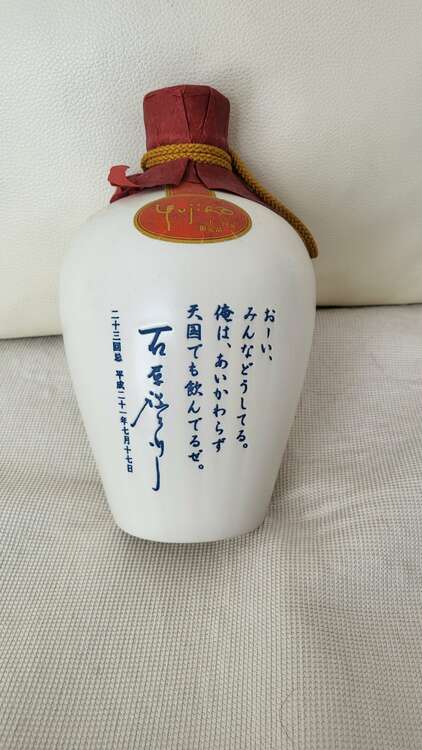 Yujiro
限定品
おーい、
みんなどうしてる。
俺は、あいかわらず
天国でも飲んでるぜ。
石原裕次郎
二十三回忌 平成二十一年七月十七日